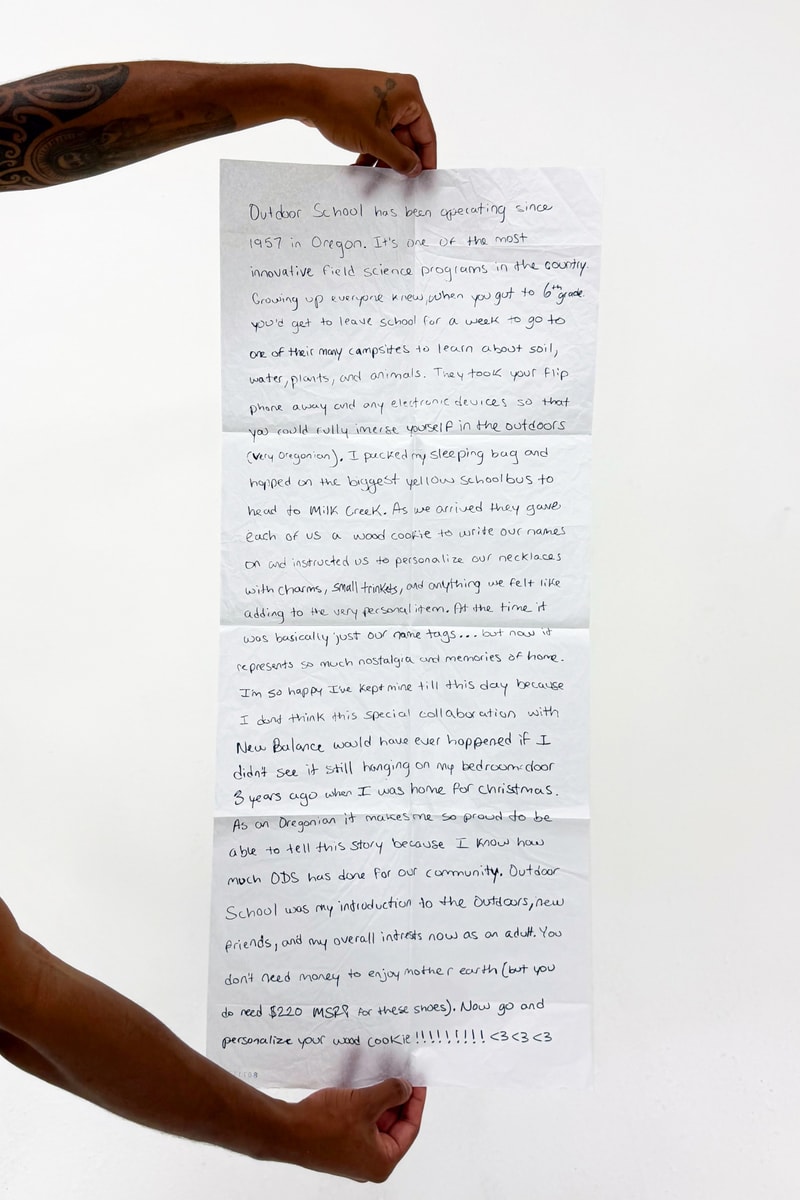 Outdoor School has been operating since
1957 in Oregon. It's one of the most
innovative field science programs in the country.
Growing up everyone knew, when you got to 6th grade
you'd get to leave school for a week to go to
one of their many campsites to learn about soil,
water, plants, and animals. They took your flip
phone away and any electronic devices so that
you could fully imerse yourself in the outdoors
(very Oregonian). I packed my sleeping bag and
hopped on the biggest yellow school bus to
head to Milk Creek. As we arrived they gave
each of us a wood cookie to write our names
on and instructed us to personalize our necklaces
with charms, small trinkets, and anything we felt like
adding to the very personal item. At the time it
was basically just our name tags... but now it
represents so much nostalgia and memories of home.
I'm so happy I've kept mine till this day because
I dont think this special collaboration with
New Balance would have ever happened if I
didn't see it still hanging on my bedroom door
3 years ago when I was home for christmas.
As an Oregonian it makes me so proud to be
able to tell this story because I know how
much ODS has done for our community. Outdoor
School was my introduction to the outdoors, new
friends, and my overall intrests now as an adult. You
don't need money to enjoy mother earth (but you
do need $220 MSRP for these shoes). Now go and
personalize your wood cookie!!!!!!!!! <3 <3 <3